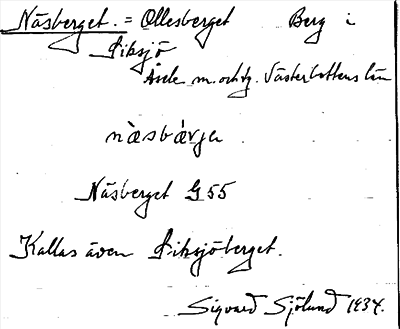 Näsberget. = Ollesberget Berg i
Siksjö
Åsele m. och tg. Västerbottens län
nà̀esbǽrja
Näsberget G 55
Kallas även Siksjöberget.
Sigvard Sjölund 1934.